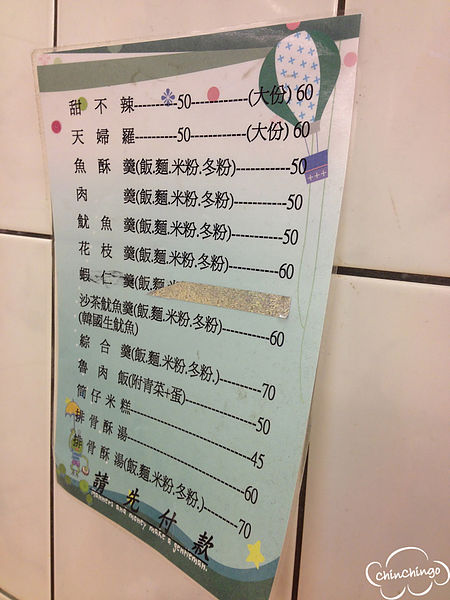 甜不辣----------50-------------(大份) 60
天婦羅----------50-------------(大份) 60
魚酥羹(飯.麵.米粉.冬粉)-------------50
肉 羹(飯.麵.米粉.冬粉)-------------50
魷魚羹(飯.麵.米粉.冬粉)-------------50
花枝羹(飯.麵.米粉.冬粉)-------------60
蝦仁羹(飯.麵
沙茶魷魚羹(飯.麵.米粉.冬粉)-----------60
(韓國生魷魚)
綜合羹(飯.麵.米粉.冬粉.)----------70
魯肉飯(附青菜+蛋)-----------------50
筒仔米糕-----------------------------45
排骨酥湯-----------------------------60
排骨酥湯(飯.麵.米粉.冬粉.)--------70
請先付款
Manners and money make a gentleman.
chinchingo